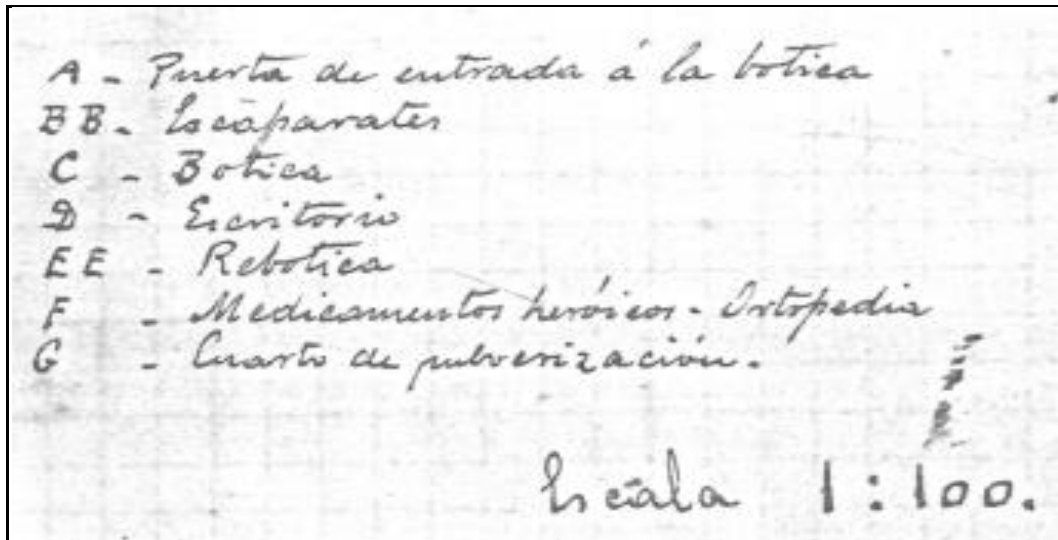 A - Puerta de entrada á la botica
BB - Escaparates
C - Botica
D - Escritorio
EE - Rebotica
F - Medicamentos heróicos - Ortopedia
G - Cuarto de pulverización.
Escala 1:100.